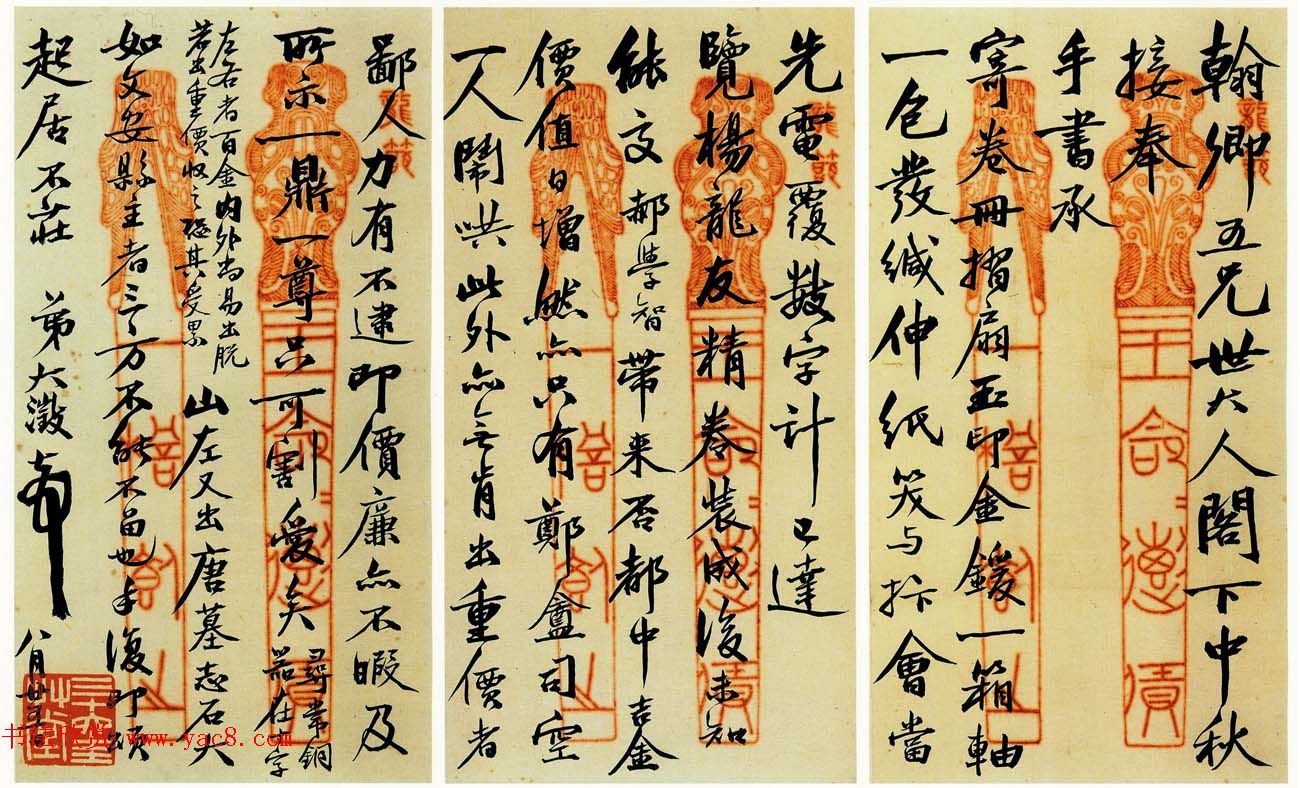 翰卿五兄世大人閣下中秋
接奉
手書承
寄卷冊摺扇玉印金鍰一箱軸
一包發緘伸紙笑與抃會當
先電覆數字計已達
覽楊龍友精卷裝成後未知
能交郝學智帶来否都中吉金
價值日增然亦只有鄭盦司空
一人鬧哄此外亦无肯出重價者
鄙人力有不逮即價廉亦不暇及
所示一鼎一尊只可割愛矣尋常銅器在十字
左右者百金內外尚易出脫若出重價收之恐其受累山左又出唐墓志石大
如文安縣主者三万不能不留也手復即頌
起居不莊 弟大澂頓首
八月廿五日
书法欣赏 www.yac8.com